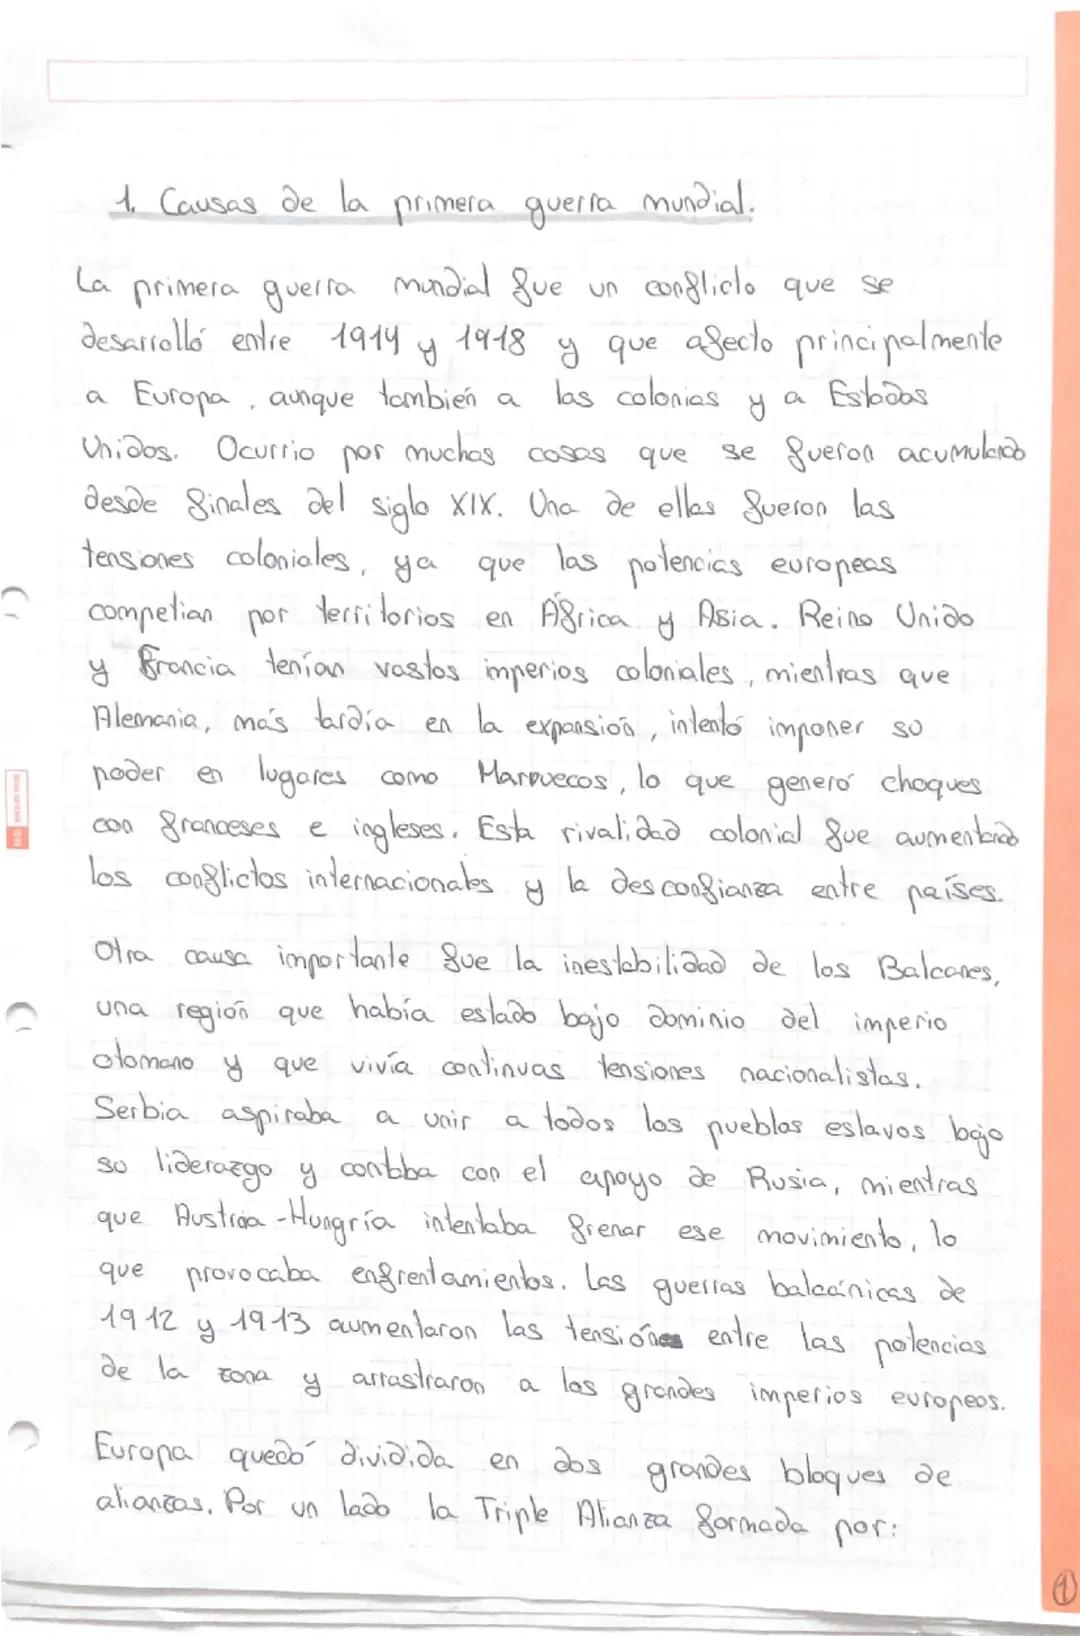 1. Causas de la primera guerra mundial.
La primera guerra mundial fue un conflicto que se
desarrolló entre 1914 y 1918 y que afecto principalmente
a Europa, aunque también a las colonias y a Estados
Unidos. Ocurrio por muchas cosas que se fueron acumulando
desde finales del siglo XIX. Una de ellas fueron las
tensiones coloniales, ya que las potencias europeas
competian por territorios en África y Asia. Reino Unido
y Francia tenían vastos imperios coloniales, mientras que
Alemania, más tardía en la expansión, intentó imponer su
poder en lugares como Marruecos, lo que generó choques
con franceses e ingleses. Esta rivalidad colonial fue aumentando
los conflictos internacionales y la desconfianza entre países.
Otra causa importante fue la inestabilidad de los Balcanes,
una región que había estado bajo dominio del imperio
otomano y que vivía continuas tensiones nacionalistas.
Serbia aspiraba a unir a todos los pueblos eslavos bajo
su liderazgo y contaba con el apoyo de Rusia, mientras
que Austria-Hungría intentaba frenar ese movimiento, lo
que provocaba enfrentamientos. Las guerras balcánicas de
1912 y 1913 aumentaron las tensiónes entre las potencias
de la zona y arrastraron a los grandes imperios europeos.
Europa quedó dividida en dos grandes bloques de
alianzas. Por un lado la Triple Alianza formada por:
1